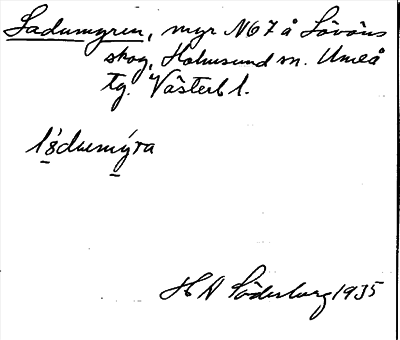 Ladumyren, myr N67 å Lövöns
skog, Holmsund sn. Umeå
tg. Västerb l.
l'àdumýra
H A Söderberg 1935